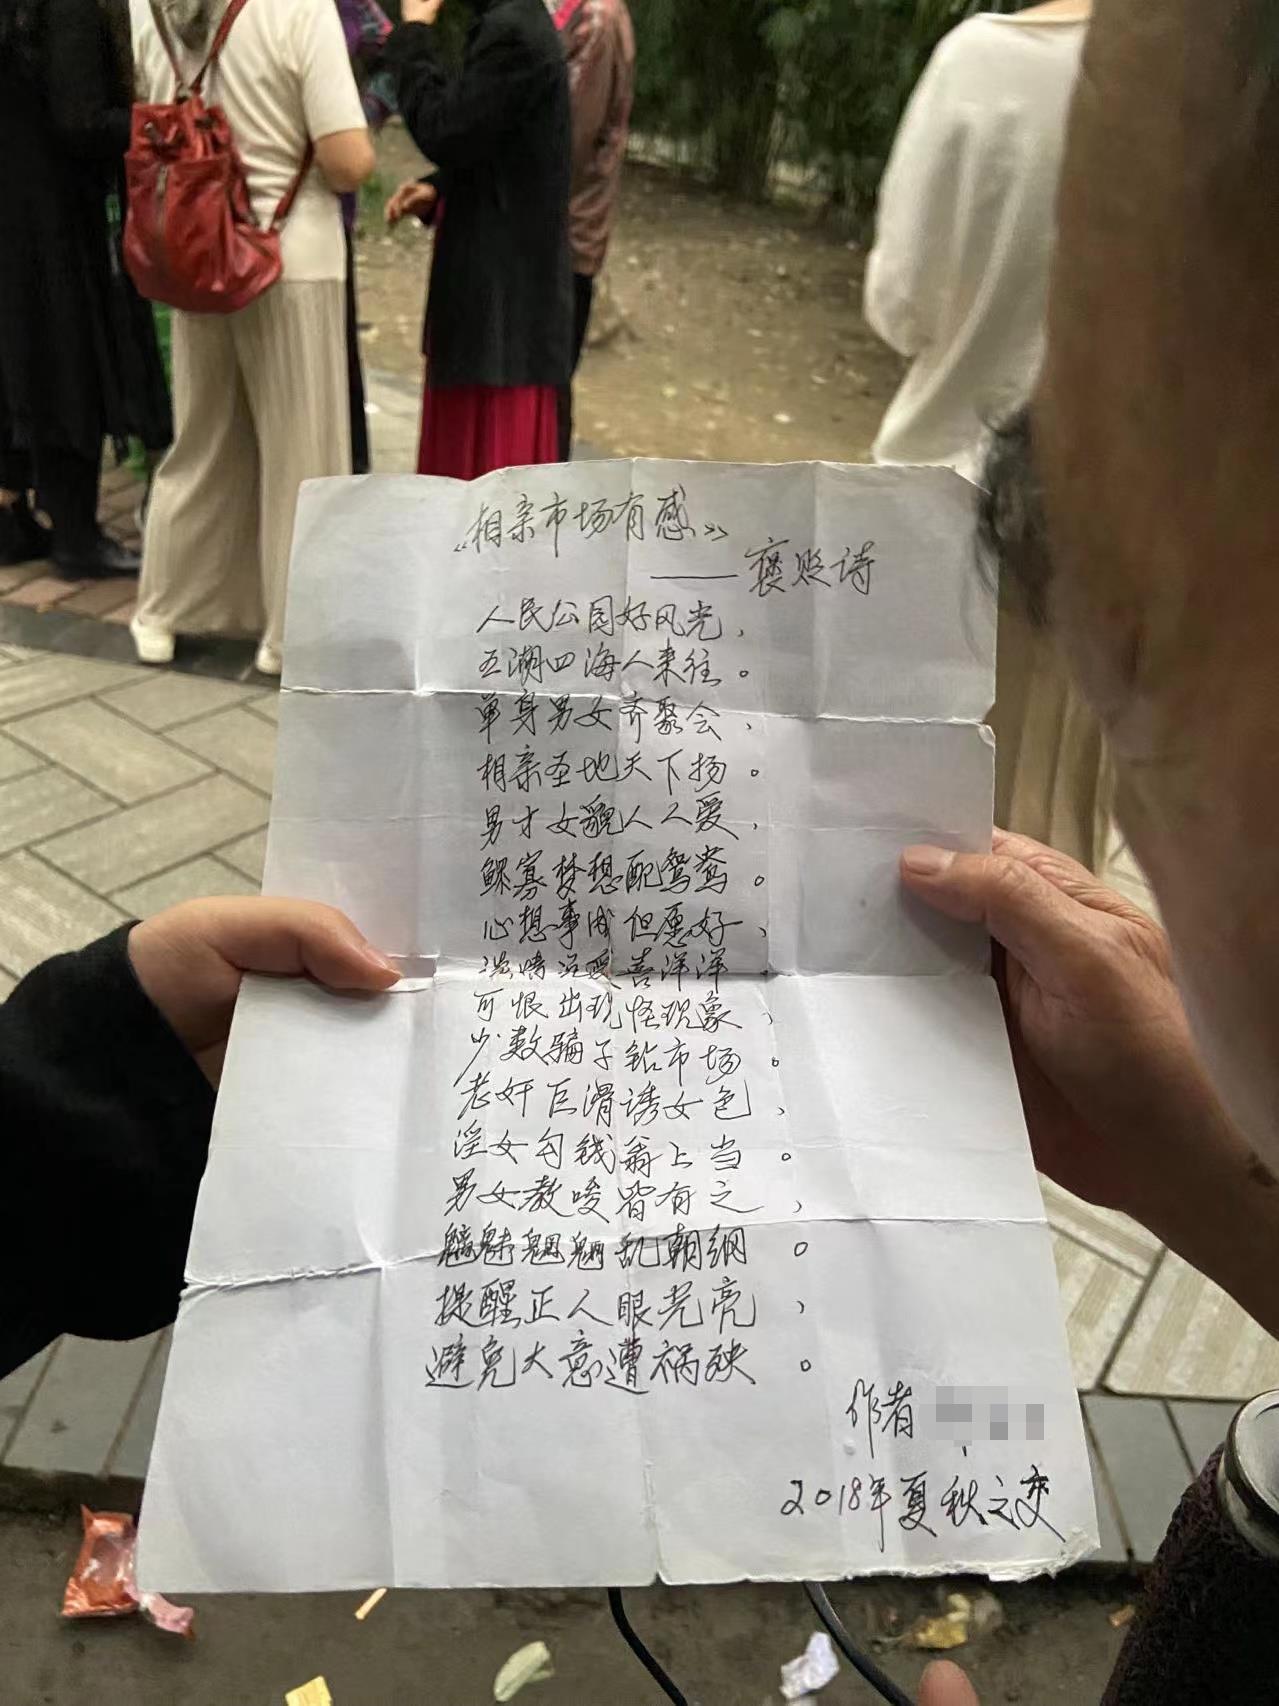 《相亲市场有感》
——褒贬诗
人民公园好风光，
五湖四海人来往。
单身男女齐聚会，
相亲圣地天下扬。
男才女貌人人爱，
鳏寡梦想配鸳鸯。
心想事成但愿好，
喜洋洋
可恨出现怪现象，
少数骗子钻市场。
老奸巨滑诱女色，
淫女勾钱翁上当。
男女教唆皆有之，
魑魅魍魉乱朝纲。
提醒正人眼光亮，
避免大意遭祸殃。
作者
2018年夏秋之交